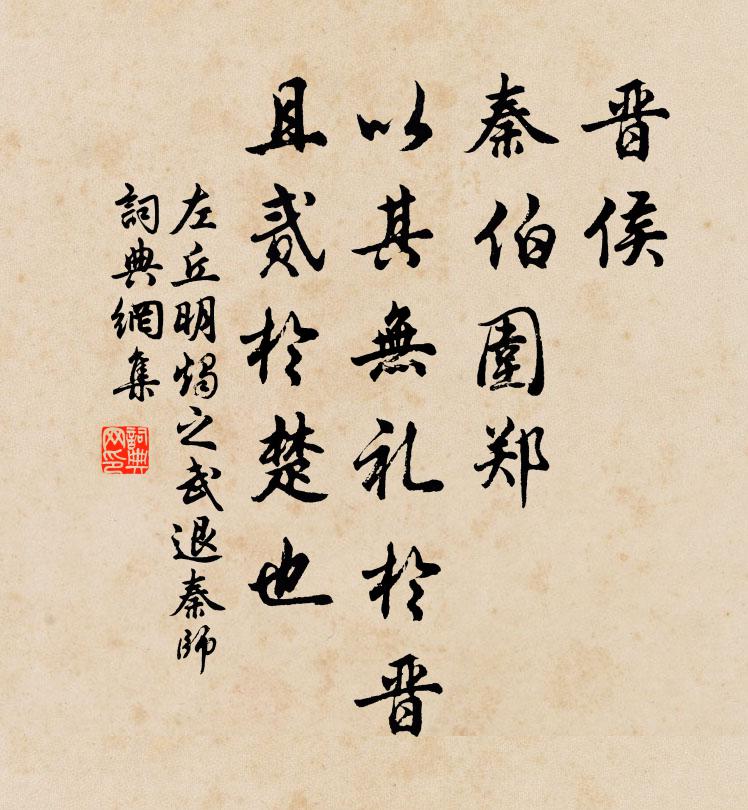 晋侯
秦伯圍郑
以其無礼於晋
且貳於楚也
左丘明燭之武退秦師
詞典網集
詞典网印